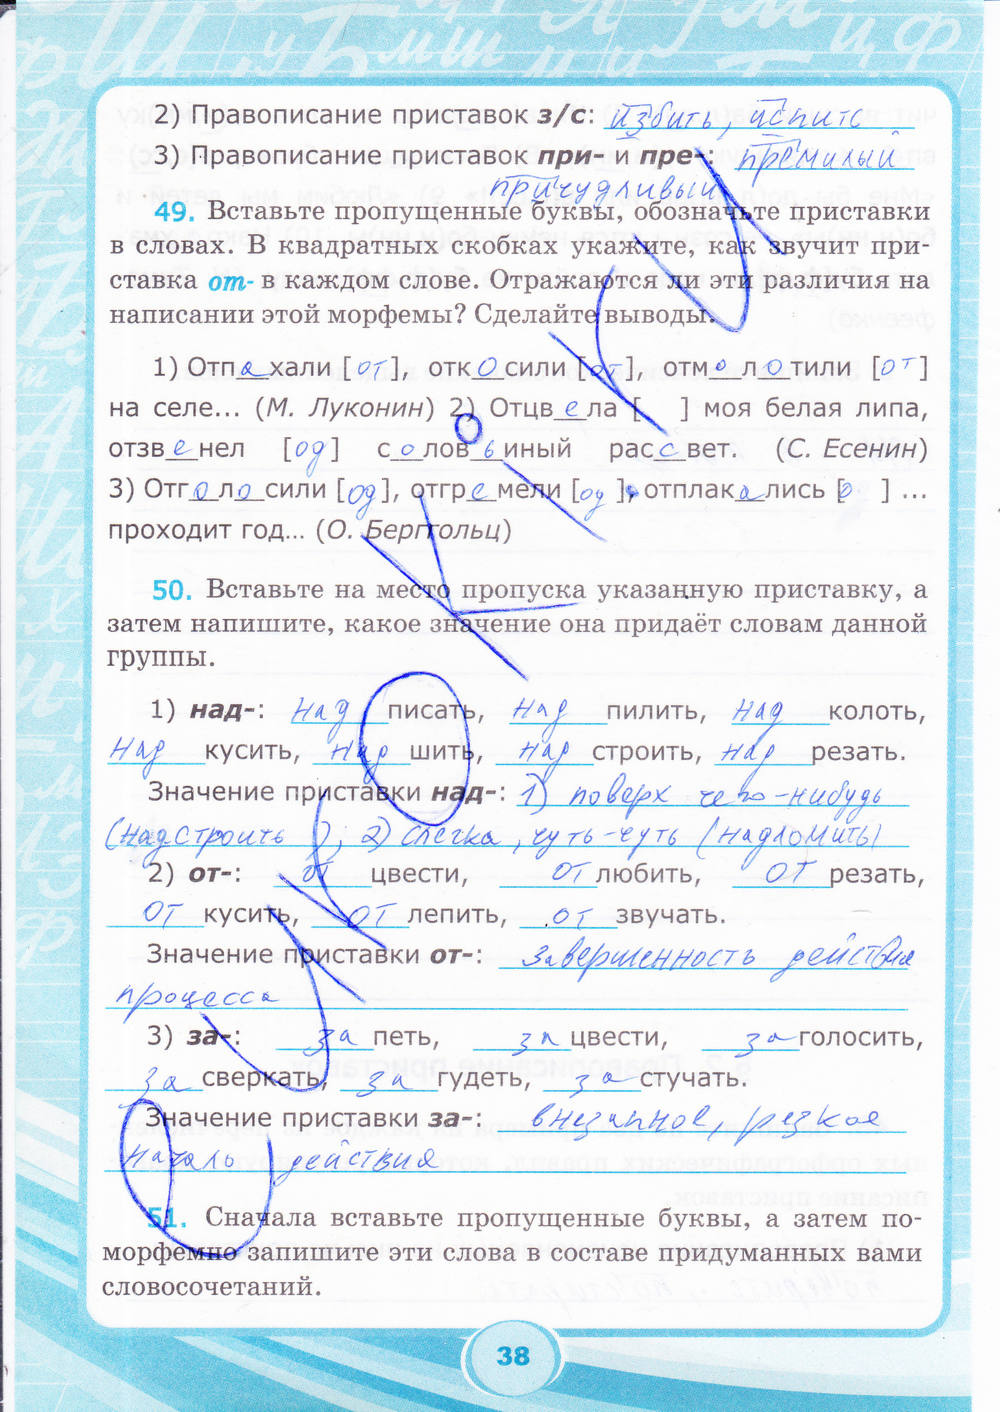 2) Правописание приставок з/с: избить, испить
3) Правописание приставок при- и пре-: премилый
причудливый
49. Вставьте пропущенные буквы, обозначьте приставки
в словах. В квадратных скобках укажите, как звучит при-
ставка от- в каждом слове. Отражаются ли эти различия на
написании этой морфемы? Сделайте выводы.
1) Отпахали [от], откосили [от], отмолотили [от]
на селе... (М. Луконин) 2) Отцвела [ ] моя белая липа,
отзвенел [од] соловьиный рассвет. (С. Есенин)
3) Отголосили [од], отгремели [од], отплакались [о ] ...
проходит год... (О. Берггольц)
50. Вставьте на место пропуска указанную приставку, а
затем напишите, какое значение она придаёт словам данной
группы.
1) над-: над писать, над пилить, над колоть,
над кусить, над шить, над строить, над резать.
Значение приставки над-: 1) поверх чего-нибудь
(надстроить); 2) слегка, чуть-чуть (надломить)
2) от-: от цвести, от любить, от резать,
от кусить, от лепить, от звучать.
Значение приставки от-: завершенность действия
процесса
3) за-: за петь, за цвести, за голосить,
за сверкать, за гудеть, за стучать.
Значение приставки за-: внезапное, резкое
начало действия
51. Сначала вставьте пропущенные буквы, а затем по-
морфемно запишите эти слова в составе придуманных вами
словосочетаний.
38